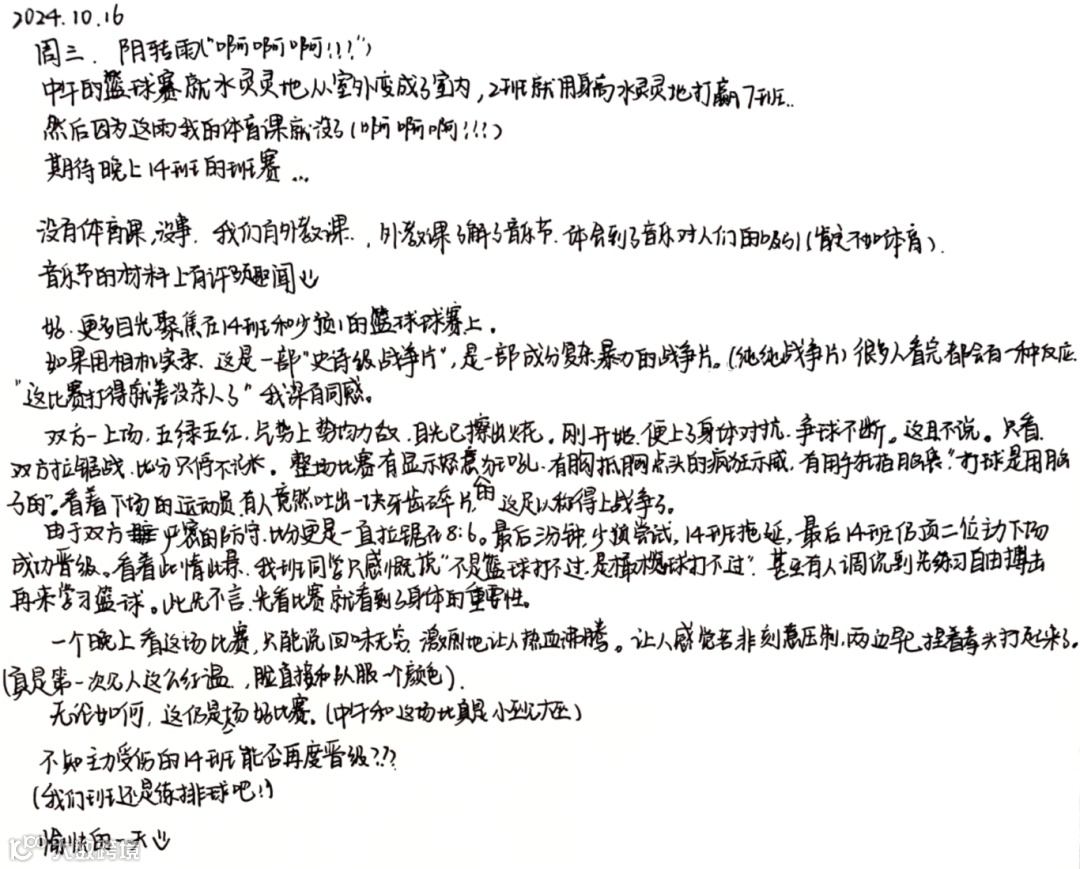 2024.10.16
周三. 阴转雨("啊啊啊啊!!!")
中午的篮球赛就水灵灵地从室外变成了室内,2班就用身高水灵灵地打赢7班..
然后因为这雨我的体育课就没了(啊啊啊!!!)
期待晚上14班的班赛...
没有体育课,没事. 我们有外教课. ,外教课了解了音乐节.体会到了音乐对人们的吸引(肯定不如体育).
音乐节的材料上有许多趣闻
好.更多目光聚焦在14班和少预1的篮球球赛上。
如果用相机实录.这是一部"史诗级战争片",是一部成分复杂暴力的战争片。(纯纯战争片)很多人看完都会有一种反应.
"这比赛打得就差没杀人了"我深有同感。
双方一上场,五绿五红,气势上势均力敌.目光已擦出火花。刚开始.便上了身体对抗.争球不断。这且不说。只看
双方拉锯战.比分只停不涨。整场比赛有显示好意的狂吼.有胸抵胸点头的疯狂示威,有用手指指脑袋"打球是用脑
子的"。看着下场的运动员,有人竟然吐出一块牙齿碎片.这足以称得上战争了。
由于双方严密的防守.比分更是一直拉锯在8:6。最后3分钟,少预尝试,14班拖延,最后14班伤项二位主力下场
成功晋级。看着此情此景.我班同学只感慨说"不是篮球打不过.是橄榄球打不过".甚至有人调侃到先练习自由搏击
再来学习篮球。此先不言.光看比赛就看到了身体的重要性。
一个晚上看这场比赛,只能说回味无穷.激烈地让人热血沸腾。让人感觉若非刻意压制,两边早已捏着拳头打起来了。
(真是第一次见人这么红温.,脸直接和队服一个颜色).
无论如何,这仍是场好比赛。(中午和这场比真是小巫见大巫)
不知主力受伤的14班能否再度晋级???
(我们班还是练排球吧!!)
愉快的一天
大数跨境